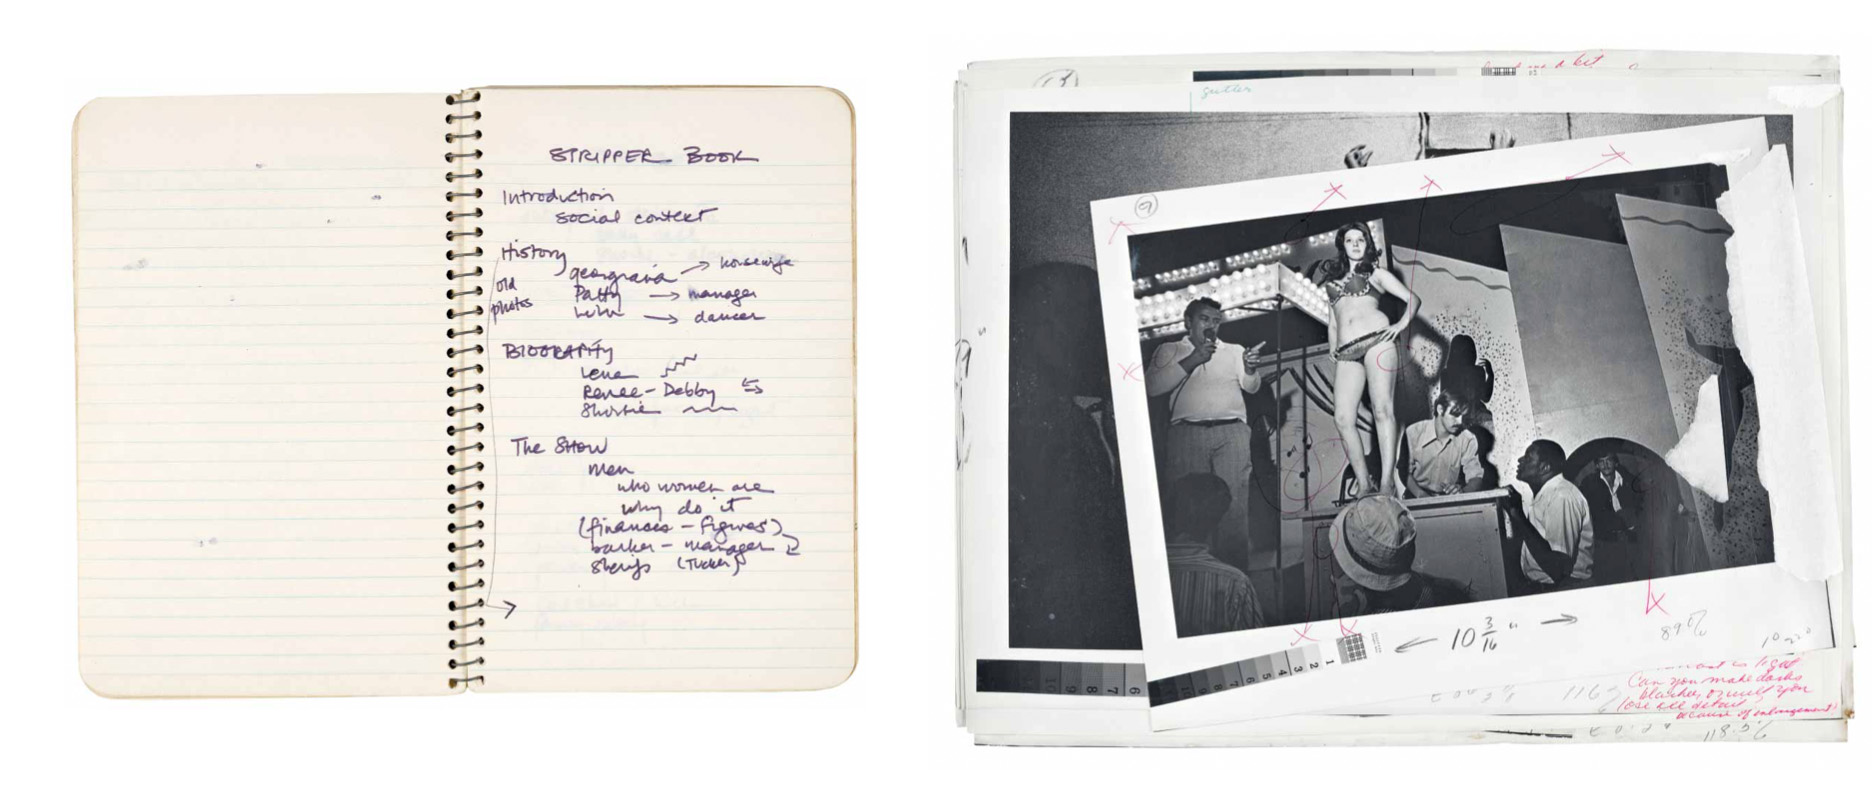 STRIPPER BOOK
Introduction
social context
History
old
photos
georgeana → housewife
Patty → manager
Lulu → dancer
BIOGRAPHY
Lena
Renee - Debby
Shortie
The SHOW
men
who women are
why do it
(finances - figures)
barker - manager
sheriff (Tucker)
13
a bit
gutter
9
← 10 3/16" →
89%
1 2 3 4 5 6 7
6 7 8 9 10
116
Can you make darks
blacker, or will you
lose all detail
because of enlargement
118.5%